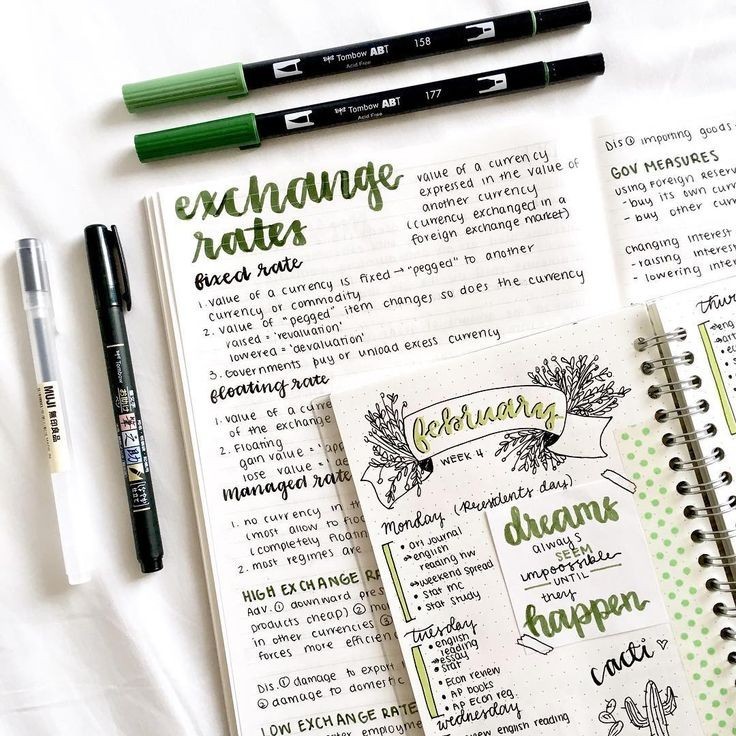 Tombow ABT 158
Acid Free
Tombow ABT 177
Acid Free
MUJI 無印良品
Tombow
筆之助
exchange
rates
value of a currency
expressed in the value of
another currency
(currency exchanged in a
foreign exchange market)
fixed rate
1. value of a currency is fixed → "pegged" to another
currency or commodity
2. value of "pegged" item changes so does the currency
raised = 'revaluation'
lowered = 'devaluation'
3. Governments buy or unload excess currency
floating rate
1. value of a curre
of the exchange
2. Floating
gain value =
lose value =
managed rate
1. no currency in th
(most allow to floa
(completely floatin
2. most regimes are
HIGH EXCHANGE RA
Adv. ① downward pres
products cheap) ② mo
in other currencies ③
forces more efficien
Dis. ① damage to export i
② damage to domestic
LOW EXCHANGE RATE
employme
Dis ① importing goods
GOV MEASURES
using foreign reserv
- buy its own curr
- buy other curr
changing interest
- raising interes
- lowering inter
february
WEEK 4
monday (Presidents day)
• art journal
• english
reading hw
→ weekend spread
• stat mc
• stat study
tuesday
• english
reading
→ essay
• stat
• Econ review
• AP books
• AP Econ reg.
wednesday
review english reading
dreams
always
SEEM
impoossible
UNTIL
they
happen
cacti ♡
thur